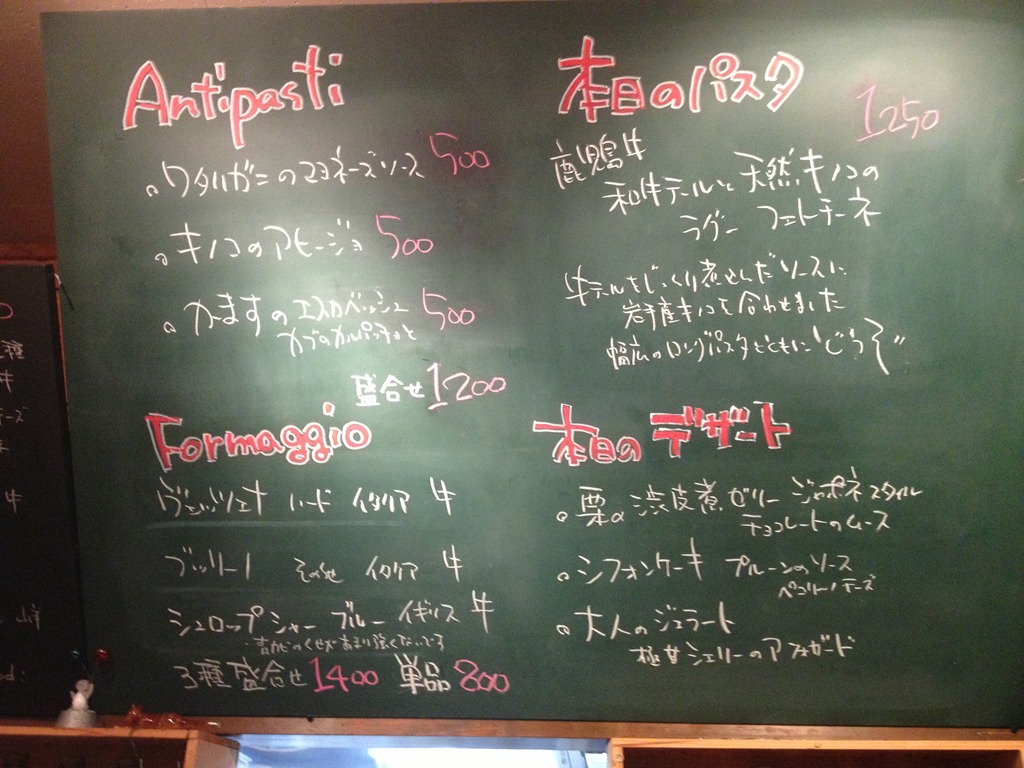 Antipasti
。ワタリガニのマヨネーズソース 500
。キノコのアヒージョ 500
。かますのエスカベッシュ 500
カブのカルパッチョと
盛合せ 1200
Formaggio
ヴェッツェナ ハード イタリア 牛
ブッリーノ その他 イタリア 牛
シュロップシャーブルー イギリス 牛
・青カビのくせがあまり強くないです
3種盛合せ 1400 単品 800
本日のパスタ
1250
和牛テールと天然キノコの
ラグー フェトチーネ
牛テールをじっくり煮込んだソースに
岩手産キノコを合わせました
幅広のロングパスタとともに"どうぞ"
本日のデザート
。栗の渋皮煮ゼリー ジャポネスタイル
チョコレートのムース
。シフォンケーキ プルーンのソース
ペコリーノチーズ
。大人のジェラート
極甘シェリーのアフォガード